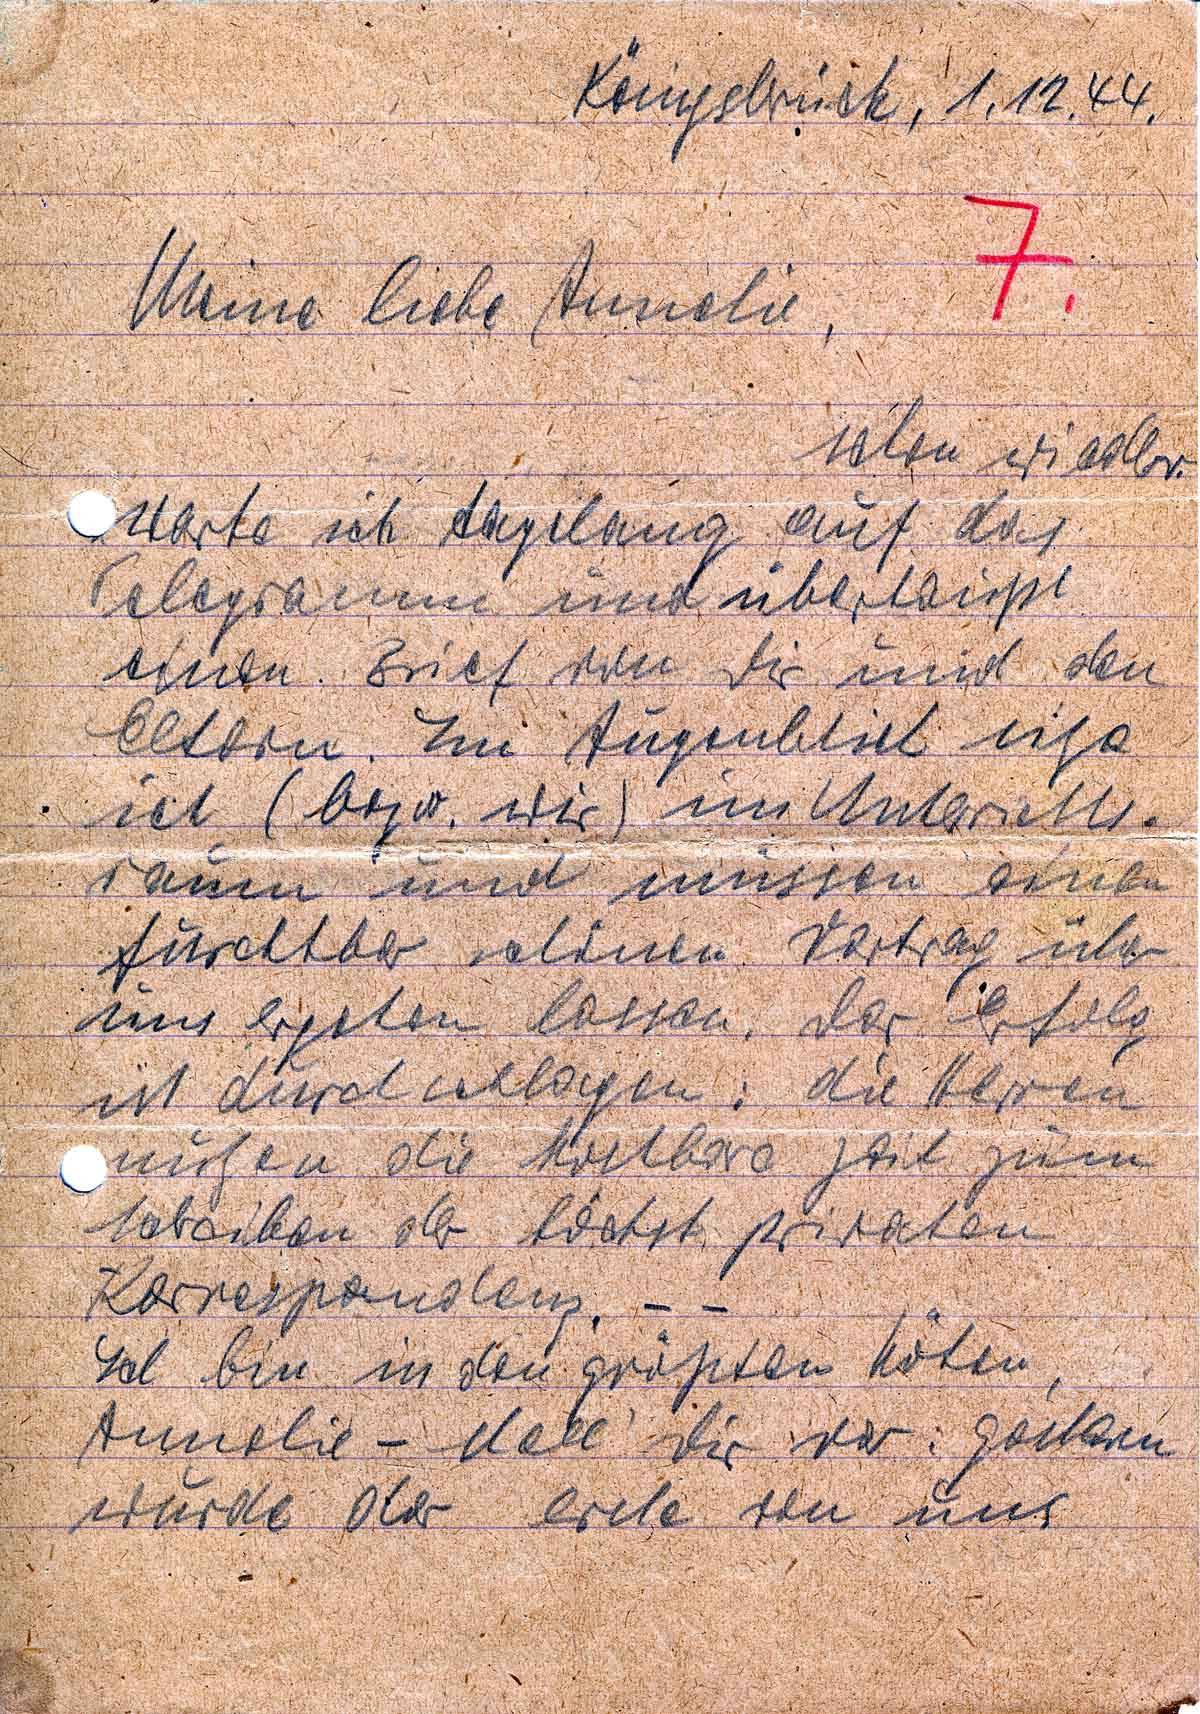 Königsbrück, 1.12.44.
7.
Meine liebe Annelie,
schon wieder
warte ich tagelang auf das
Telegramm und überhaupt
einen Brief von Dir und den
Eltern. Im Augenblick sitze
ich (bezw. wir) im Unterrichts-
raum und müssen einen
furchtbar schönen Vortrag über
uns ergehen lassen. Der Erfolg
ist durchschlagen: die Herren
nutzen die kostbare Zeit zum
schreiben der höchst privaten
Korrespondenz. – –
Ich bin in den größten Nöten,
Annelie – stell' Dir vor: gestern
wurde der erste von uns